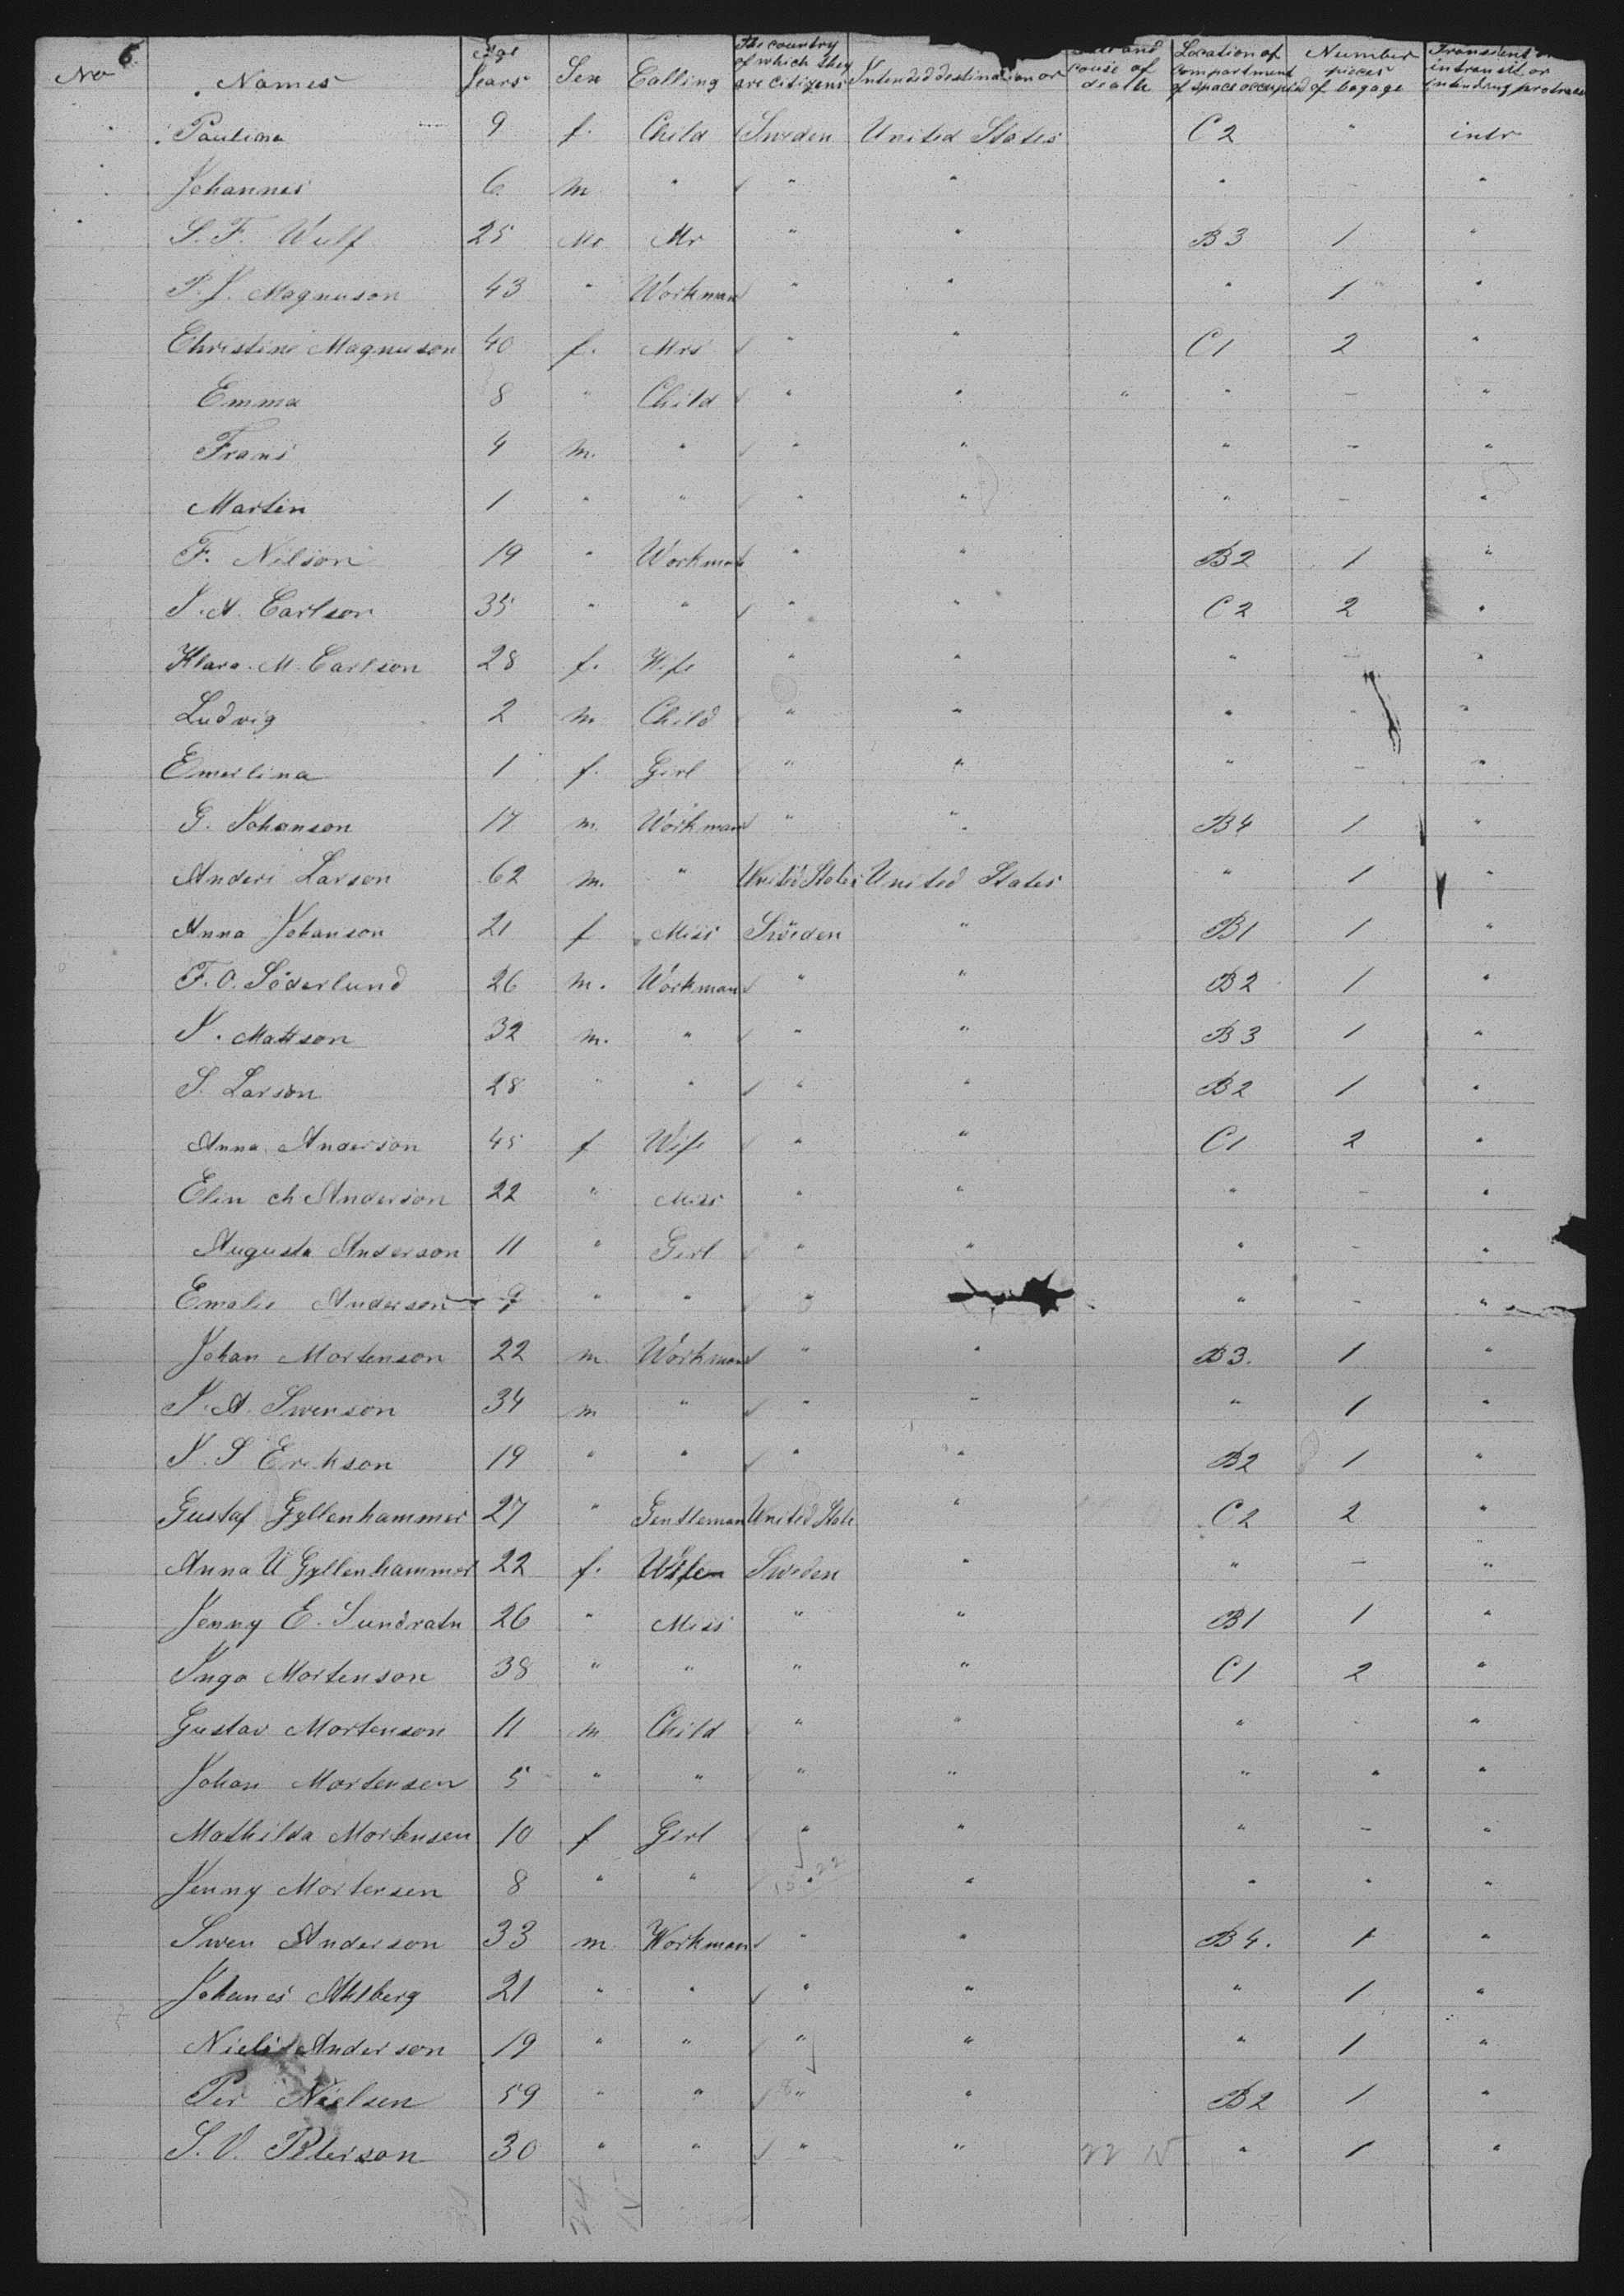 No 6. Names Age Years Sex Calling The country of which they are citizens Intended destination or cause of death Location of compartment of space occupied Number pieces of bagage intransit or
Paulina 9 f. Child Sweden United States C2 " intr
Johannes 6 m " " " " - "
S. F. Wulf 25 Mr " " B3 1 "
P. J. Magnuson 43 " Workman " " " 1 "
Christine Magnuson 40 f. Mrs " " C1 2 "
Emma 8 " Child " " " " - "
Frans 4 m. " " " " - "
Martin 1 " " " " " - "
F. Nelson 19 " Workman " " B2 1 "
J. A. Carlson 35 " " " " C2 2 "
Klara. M. Carlson 28 f. Wife " " " - "
Ludvig 2 m Child " " " - "
Emerlina 1 f. Girl " " " - "
G. Johanson 17 m. Workman " " B4 1 "
Anders Larson 62 m. " United States United States " 1 "
Anna Johanson 21 f Miss Sweden " B1 1 "
F. O. Söderlund 26 m. Workman " " B2 1 "
J. Mattson 32 m. " " " B3 1 "
S. Larson 28 " " " " B2 1 "
Anna. Anderson 45 f Wife " " C1 2 "
Elin ch Anderson 22 " Miss " " " - "
Augusta Anderson 11 " Girl " " " - "
Emelie Anderson 9 " " " " - "
Johan Mortenson 22 m. Workman " " B3. 1 "
J. A. Swenson 34 m " " " " 1 "
J. S Erikson 19 " " " " B2 1 "
Gustaf Gyllenhammer 27 " Gentleman United State " C2 2 "
Anna U Gyllenhammer 22 f. Wife Sweden " " - "
Jenny E. Sundratn 26 " Miss " " B1 1 "
Inga Mortenson 38 " " " " C1 2 "
Gustav Mortenson 11 m Child " " " - "
Johan Mortensen 5 " " " " " " "
Mathilda Mortensen 10 f Girl " " " - "
Jenny Mortensen 8 " " " " " " "
Swen Anderson 33 m Workman " " B4. 1 "
Johanes Ahlberg 21 " " " " " 1 "
Niels Anderson 19 " " " " " 1 "
Per Nielsen 59 " " " " B2 1 "
S. V. Peterson 30 " " " " 22 15 " 1 "